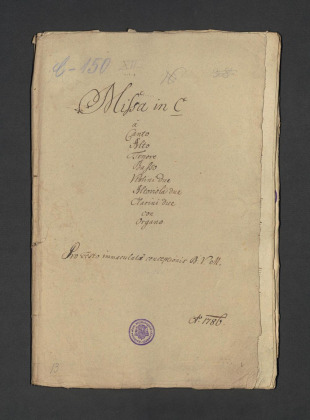 C-150
Missa in C.
á
Canto
Alto
Tenore
Basso
Violini due
Altoviola due
Clarini due
con
Organo
Pro festo immaculatæ conceptionis B. V. M.
Aº 1786